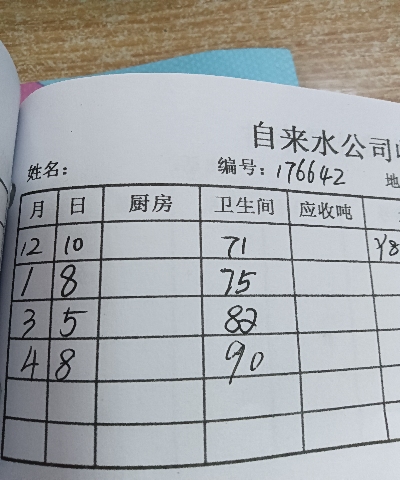 自来水公司
姓名： 编号：176642
月 日 厨房 卫生间 应收吨
12 10 71
1 8 75
3 5 82
4 8 90